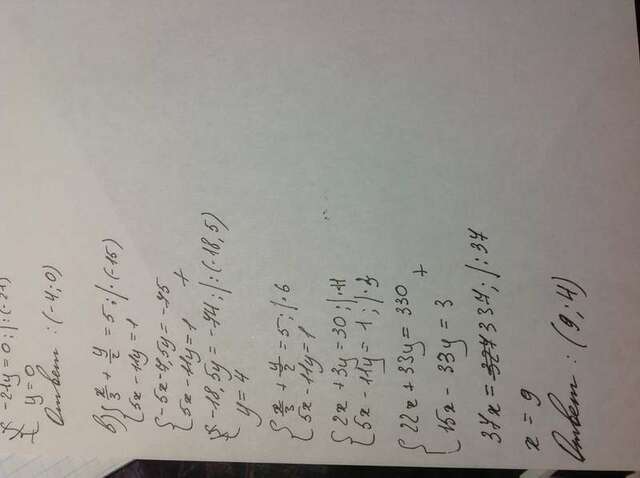 -21y = 0; |:(-21)
y = 0
Ответ: (-4; 0)
в) { x/3 + y/2 = 5; |·(-15)
5x - 11y = 1
{ -5x - 7,5y = -75
5x - 11y = 1 +
{ -18,5y = -74; |:(-18,5)
y = 4
{ x/3 + y/2 = 5; |·6
5x - 11y = 1
{ 2x + 3y = 30; |·11
5x - 11y = 1; |·3
{ 22x + 33y = 330
15x - 33y = 3 +
37x = 334; |:37
x = 9
Ответ: (9; 4)